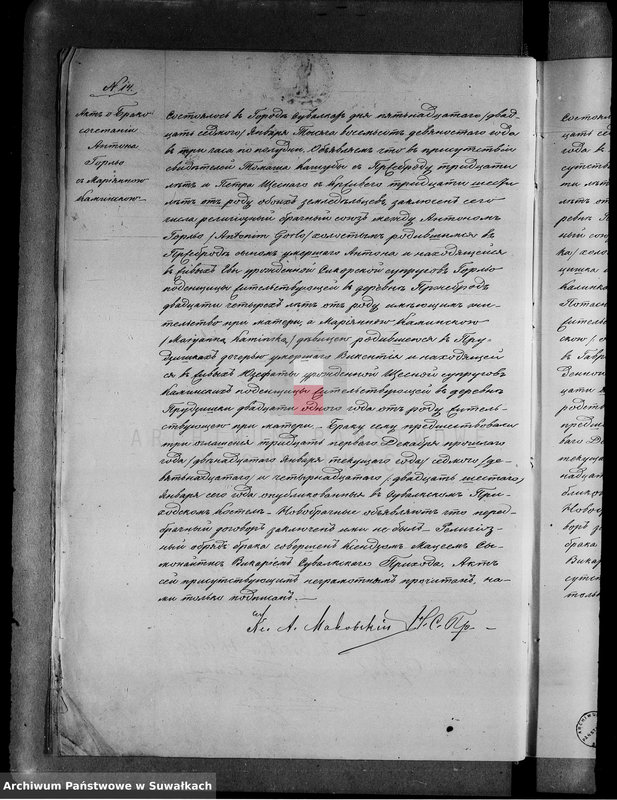 № 14.
Актъ о Брако
сочетании
Антона
Горло
съ Маріянною
Каминскою
Состоялось въ Городѣ Сувалкахъ дня пятьнадцатаго /двад-
цать седмого/ Января Тысяча восемьсотъ девяностаго года
въ три часа по полудни. Объявляемъ что въ присутствіи
свидѣтелей Томаша Кашубы съ Пржеброду тридцати
лѣтъ и Петра Щеснаго съ Кривого тридцати шести
лѣтъ отъ роду обоихъ земледѣльцевъ заключенъ сего
числа религіозный брачный союзъ между Антономъ
Горло /Antonim Gorło/ холостымъ родившимся въ
Пржебродѣ сыномъ умершаго Антона и находящейся
въ живыхъ Евы урожденной супруговъ Горло
поденщицы жительствующей въ деревнѣ Пржебродъ
двадцати четырехъ лѣтъ отъ роду имѣющимъ жи-
тельство при матери, а Маріянною Каминскою
/Maryanką Kamińską/ дѣвицею родившеюся въ Пру-
дзишкахъ дочерью умершаго Викентія и находящей
ся въ живыхъ Юзефаты урожденной Щесной супруговъ
Каминскихъ поденщицы жительствующей въ деревнѣ
Прудзишки двадцати одного года отъ роду житель-
ствующею при матери. Браку сему предшествовали
три оглашенія тридцать перваго Декабря прошлаго
года /двѣнадцатаго Января текущаго года/ седмого /де-
вятнадцатаго/ и четырнадцатаго /двадцать шестаго/
Января сего года опубликованныя въ Сувалкскомъ При-
ходскомъ Костелѣ. Новобрачные объявляютъ что пред-
брачный договоръ заключенъ ими не былъ. Религіоз-
ный обрядъ брака совершенъ Ксендзомъ
Викаріемъ Сувалкскаго Прихода. Актъ
сей присутствующимъ неграмотнымъ прочитанъ, на-
ми только подписанъ.
Кс. А. Маковскій Н. С. Пр.
Archiwum Państwowe w Suwałkach